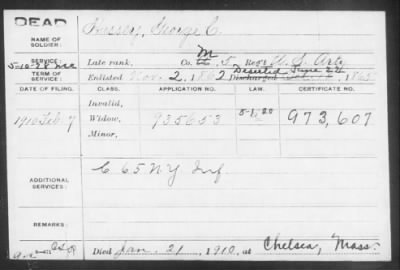 DEAD
NAME OF SOLDIER: Hussey, George C.
SERVICE: Late rank, Co. M 5 Reg't U.S. Arty
TERM OF SERVICE: Enlisted Nov. 2, 1862 Deserted June 22 Discharged 1865
DATE OF FILING. CLASS. APPLICATION NO. LAW. CERTIFICATE NO.
Invalid,
1910 Feb. 7 Widow, 935653 973,607
Minor,
ADDITIONAL SERVICES: C 65 N.Y. Inf.
REMARKS:
Died Jan. 21, 1910, at Chelsea, Mass.